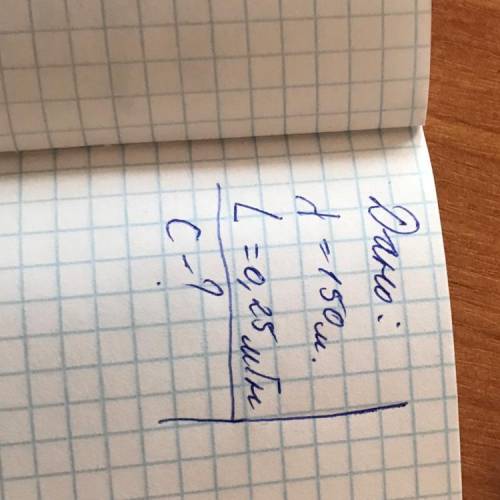 Дано:
λ = 150 м.
L = 0,25 мГн
C - ?